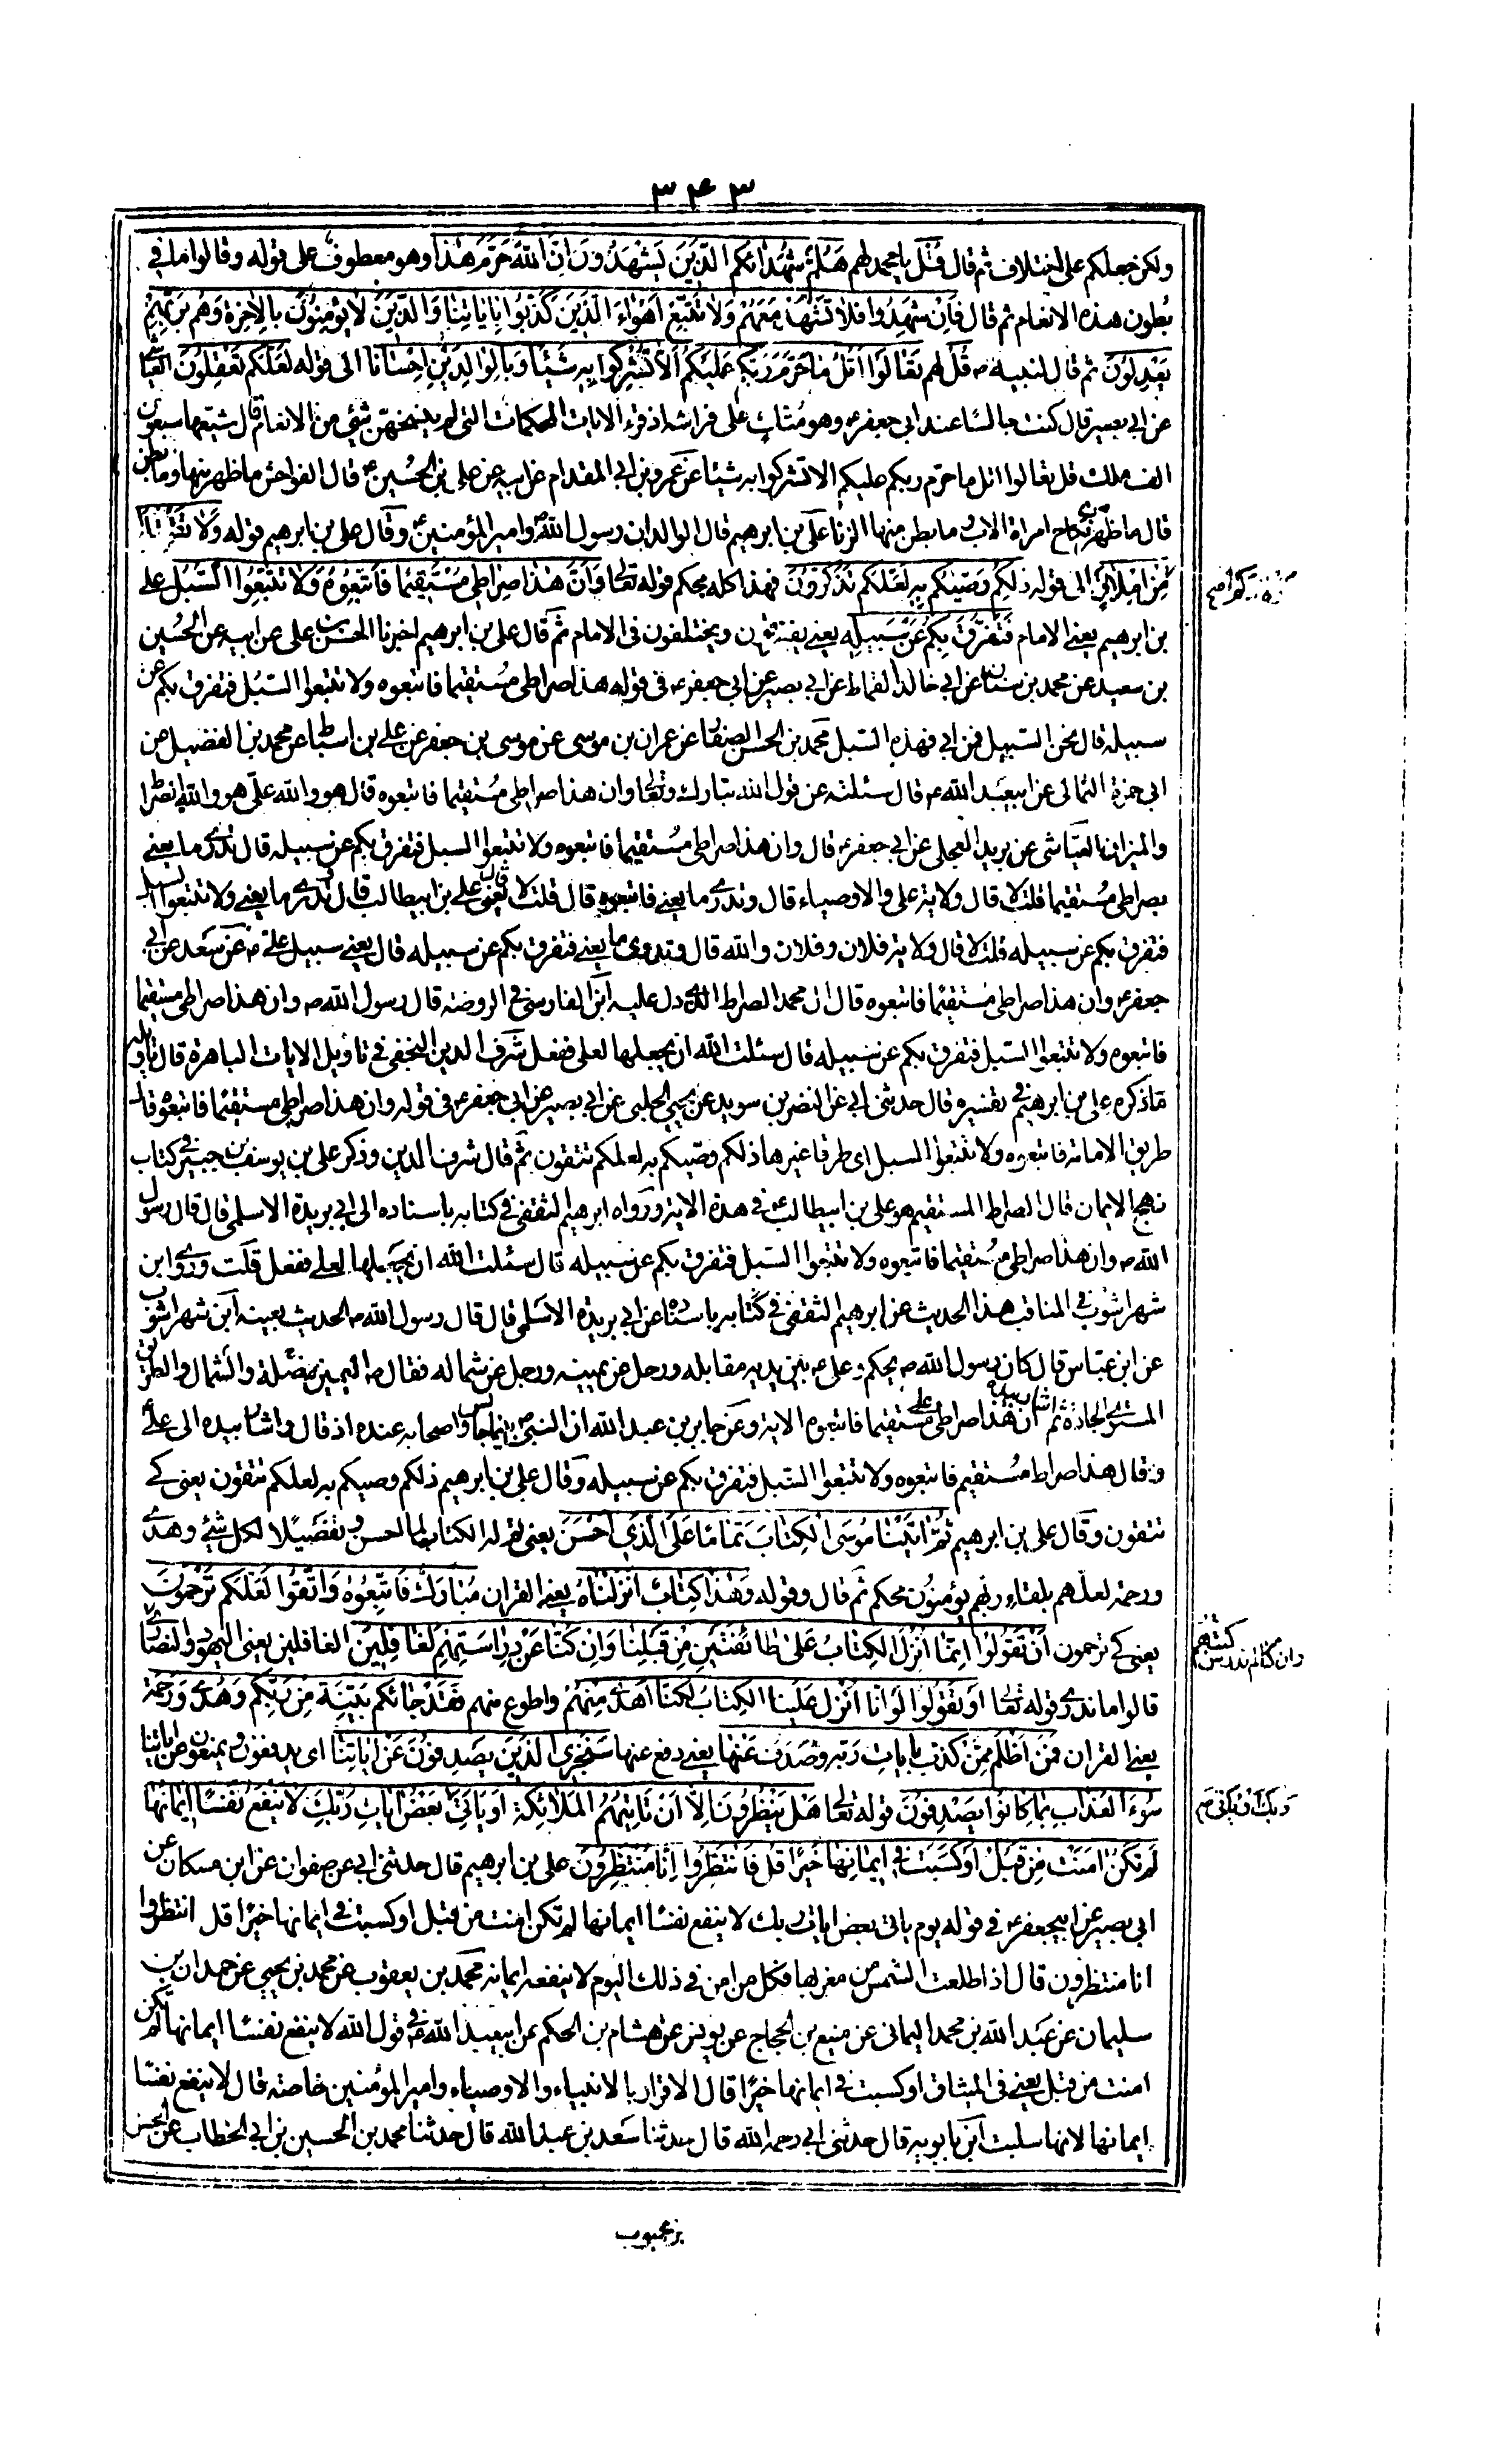 ٣٤٣
ولكن جعلكم على اختلاف ثم قال قُل يا محمد لهم هَلُمَّ شُهَدَاءَكُم الَّذِينَ يَشْهَدُونَ اَنَّ اللهَ حَرَّمَ هٰذَا وهو معطوف على قوله وقالوا ما في
بطون هذه الانعام ثم قال فَاِن شَهِدُوا فَلا تَشْهَدْ مَعَهُمْ وَلا تَتَّبِعْ اَهْوَاءَ الَّذِينَ كَذَّبُوا بِاٰيَاتِنَا وَالَّذِينَ لا يُؤْمِنُونَ بِالاٰخِرَةِ وَهُم بِرَبِّهِمْ
يَعْدِلُونَ ثم قال لنبيه ص قُلْ لهم تَعَالَوْا اَتْلُ مَا حَرَّمَ رَبُّكُم عَلَيْكُمْ اَلاَّ تُشْرِكُوا بِهِ شَيْئًا وَبِالْوَالِدَيْنِ اِحْسَانًا الى قوله لَعَلَّكُم تَعْقِلُونَ العياشي
عن ابي بصير قال كنت جالسا عند ابي جعفر ع وهو متكئ على فراشه اذ قرء الايات المحكمات التي لم ينسخهن شئ من الانعام قال شيعها سبعون
الف ملك قل تعالوا اتل ما حرم ربكم عليكم الا تشركوا به شيئا عن عمرو بن ابي المقدام عن ابيه عن علي بن الحسين ع قال الفواحش ما ظهر منها وما بطن
قال ما ظهر نكاح امراة الاب وما بطن منها الزنا علي بن ابرهيم قال الوالدان رسول الله ص وامير المؤمنين ع وقال علي بن ابرهيم قوله وَلا تَقْتُلُوا
مِن اِمْلاقٍ الى قوله ذٰلِكُم وَصّٰيكُم بِهِ لَعَلَّكُم تَذَكَّرُونَ فهذا كله محكم قوله تعالى وَاَنَّ هٰذَا صِرَاطِي مُسْتَقِيمًا فَاتَّبِعُوهُ وَلا تَتَّبِعُوا السُّبُلَ علي
بن ابرهيم يعني الامام فَتَفَرَّقَ بِكُمْ عَن سَبِيلِهِ يعني يفترقون ويختلفون في الامام ثم قال علي بن ابرهيم اخبرنا الحسن بن علي عن ابيه عن الحسين
بن سعيد عن محمد بن سنان عن ابي خالد القماط عن ابي بصير عن ابي جعفر ع في قوله هذا صراطي مستقيما فاتبعوه ولا تتبعوا السبل فتفرق بكم عن
سبيله قال نحن السبيل فمن ابى فهذه السبل محمد بن الحسن الصفار عن عمران بن موسى عن موسى بن جعفر عن علي بن اسباط عن محمد بن الفضيل عن
ابي حمزة الثمالي عن ابيعبد الله ع قال سئلته عن قول الله تبارك وتعالى وان هذا صراطي مستقيما فاتبعوه قال هو والله علي هو والله الصراط
والميزان العياشي عن بريد العجلي عن ابي جعفر ع قال وان هذا صراطي مستقيما فاتبعوه ولا تتبعوا السبل فتفرق بكم عن سبيله قال تدري ما يعني
بصراطي مستقيما قلت لا قال ولاية علي والاوصياء قال وتدري ما يعني فاتبعوه قال قلت لا قال يعني علي بن ابيطالب قال وتدري ما يعني ولا تتبعوا السبل
فتفرق بكم عن سبيله قلت لا قال ولاية فلان وفلان والله قال وتدري ما يعني فتفرق بكم عن سبيله قال يعني سبيل علي ع عن سعد عن ابي
جعفر ع وان هذا صراطي مستقيما فاتبعوه قال ال محمد الصراط الذي دل عليه ابن الفارسي في الروضة قال رسول الله ص وان هذا صراطي مستقيما
فاتبعوه ولا تتبعوا السبل فتفرق بكم عن سبيله قال سئلت الله ان يجعلها لعلي ففعل شرف الدين النجفي في تاويل الايات الباهرة قال تاويله
ما ذكره علي بن ابرهيم في تفسيره قال حدثني ابي عن النضر بن سويد عن يحيى الحلبي عن ابي بصير عن ابي جعفر ع في قوله وان هذا صراطي مستقيما فاتبعوه قال
طريق الامامة فاتبعوه ولا تتبعوا السبل اي طرقا غيرها ذلكم وصيكم به لعلكم تتقون ثم قال شرف الدين وذكر علي بن يوسف بن جبير في كتاب
نهج الايمان قال الصراط المستقيم هو علي بن ابيطالب ع في هذه الاية ورواه ابرهيم الثقفي في كتابه باسناده الى ابي بريدة الاسلمي قال قال رسول
الله ص وان هذا صراطي مستقيما فاتبعوه ولا تتبعوا السبل فتفرق بكم عن سبيله قال سئلت الله ان يجعلها لعلي ففعل قلت وروى ابن
شهراشوب في المناقب هذا الحديث عن ابرهيم الثقفي في كتابه باسناده عن ابي بريدة الاسلمي قال قال رسول الله ص الحديث بعينه ابن شهراشوب
عن ابن عباس قال كان رسول الله ص يحكم وعلي ع بين يديه مقابله ورجل عن يمينه ورجل عن شماله فقال ص اليمين مضلة والشمال والطريق
المستوي الجادة ثم اشار بيده ان هذا صراط علي مستقيما فاتبعوه الاية وعن جابر بن عبد الله ان النبي ص بينما جالس واصحابه عنده اذ قال واشار بيده الى علي
وقال هذا صراط مستقيم فاتبعوه ولا تتبعوا السبل فتفرق بكم عن سبيله وقال علي بن ابرهيم ذلكم وصيكم به لعلكم تتقون يعني كي
تتقون وقال علي بن ابرهيم ثُمَّ اٰتَيْنَا مُوسَى الْكِتَابَ تَمَامًا عَلَى الَّذِي اَحْسَنَ يعني تم له الكتاب لما احسن وتفصيلا لكل شئ وهدى
ورحمة لعلهم بلقاء ربهم يؤمنون محكم ثم قال وقوله وَهٰذَا كِتَابٌ اَنْزَلْنَاهُ يعني القران مُبَارَكٌ فَاتَّبِعُوهُ وَاتَّقُوا لَعَلَّكُم تُرْحَمُونَ
يعني كي ترحمون اَنْ تَقُولُوا اِنَّمَا اُنْزِلَ الْكِتَابُ عَلَى طَائِفَتَيْنِ مِن قَبْلِنَا وَاِن كُنَّا عَن دِرَاسَتِهِمْ لَغَافِلِينَ يعني اليهود والنصارى
قالوا ما ندري قوله تعالى اَوْ تَقُولُوا لَوْ اَنَّا اُنْزِلَ عَلَيْنَا الْكِتَابُ لَكُنَّا اَهْدَى مِنْهُمْ واطوع منهم فَقَدْ جَائَكُم بَيِّنَةٌ مِن رَبِّكُم وَهُدًى وَرَحْمَة
يعني القران فَمَنْ اَظْلَمُ مِمَّن كَذَّبَ بِاٰيَاتِ رَبِّهِ وَصَدَفَ عَنْهَا يعني دفع عنها سَنَجْزِي الَّذِينَ يَصْدِفُونَ عَن اٰيَاتِنَا اي يدفعون ويمنعون عن اياتنا
سُوءَ الْعَذَابِ بِمَا كَانُوا يَصْدِفُونَ قوله تعالى هَلْ يَنْظُرُونَ اِلاَّ اَنْ تَأتِيَهُمُ الْمَلَائِكَةُ اَوْ يَأتِيَ بَعْضُ اٰيَاتِ رَبِّكَ لا يَنْفَعُ نَفْسًا اِيمَانُهَا
لَمْ تَكُنْ اٰمَنَتْ مِن قَبْلُ اَوْ كَسَبَتْ فِي اِيمَانِهَا خَيْرًا قُلْ فَانْتَظِرُوا اِنَّا مُنْتَظِرُونَ علي بن ابرهيم قال حدثني ابي عن صفوان عن ابن مسكان عن
ابي بصير عن ابيجعفر ع في قوله يوم ياتي بعض ايات ربك لا ينفع نفسا ايمانها لم تكن امنت من قبل او كسبت في ايمانها خيرا قل انتظروا
انا منتظرون قال اذا طلعت الشمس من مغربها فكل من امن في ذلك اليوم لا ينفعه ايمانه محمد بن يعقوب عن محمد بن يحيى عن حمدان بن
سليمان عن عبد الله بن محمد اليماني عن منيع بن الحجاج عن يونس عن هشام بن الحكم عن ابيعبد الله ع في قول الله لا ينفع نفسا ايمانها لم تكن
امنت من قبل يعني في الميثاق او كسبت في ايمانها خيرا قال الاقرار بالانبياء والاوصياء وامير المؤمنين خاصة قال لا ينفع نفسا
ايمانها لانها سلبت ابن بابويه قال حدثني ابي رحمه الله قال حدثنا سعد بن عبد الله قال حدثنا محمد بن الحسين بن ابي الخطاب عن الحسن
وان كنا لم ندرس كتبهم
ربك او ياتي صح
بن محبوب